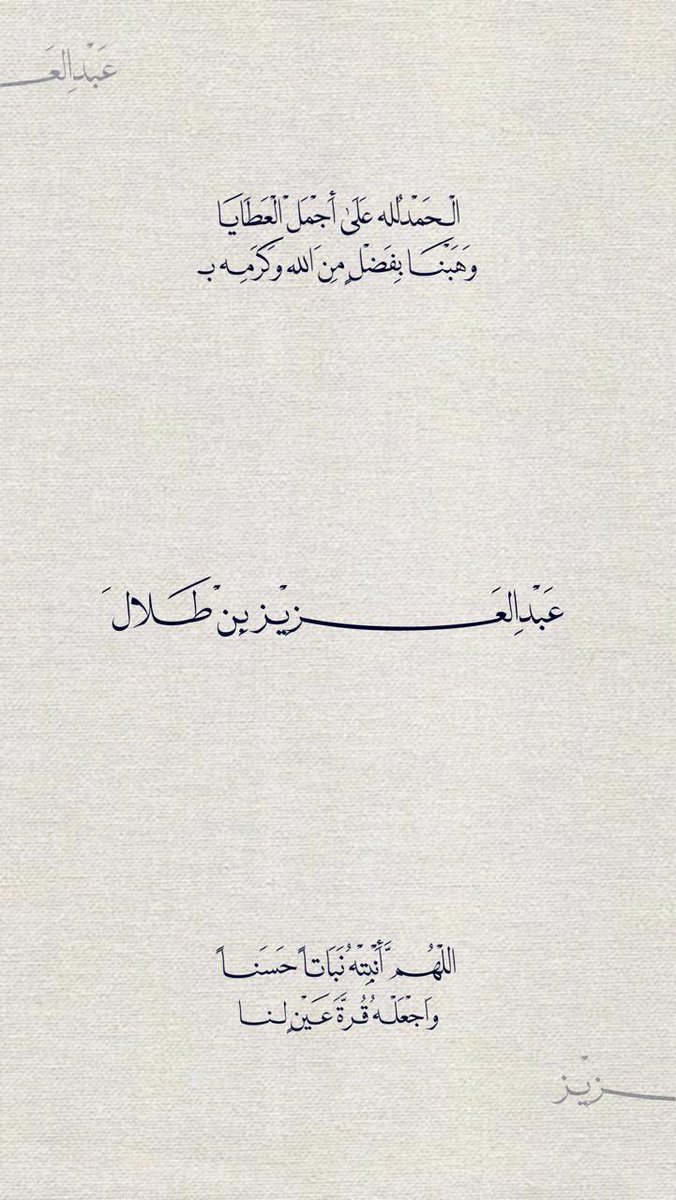 عَبْدالِعَـ
الْـحَمْدُلله عَلَىٰ أَجْمَلْ الْعَطَايَا
وَهَبْنَـا بِفَضْلٍ مِنَ الله وَكَرَمِـه بـ
عَبْدالِعَــــزيْـز بِـنْ طَــلال
اللّهُـمَّ أَنْبِتْهُ نَبَاتاً حَسَنـاً
وَاجْعَلْـهُ قُـرَّةَ عَـيْـنٍ لـنـا
ـزيْـز